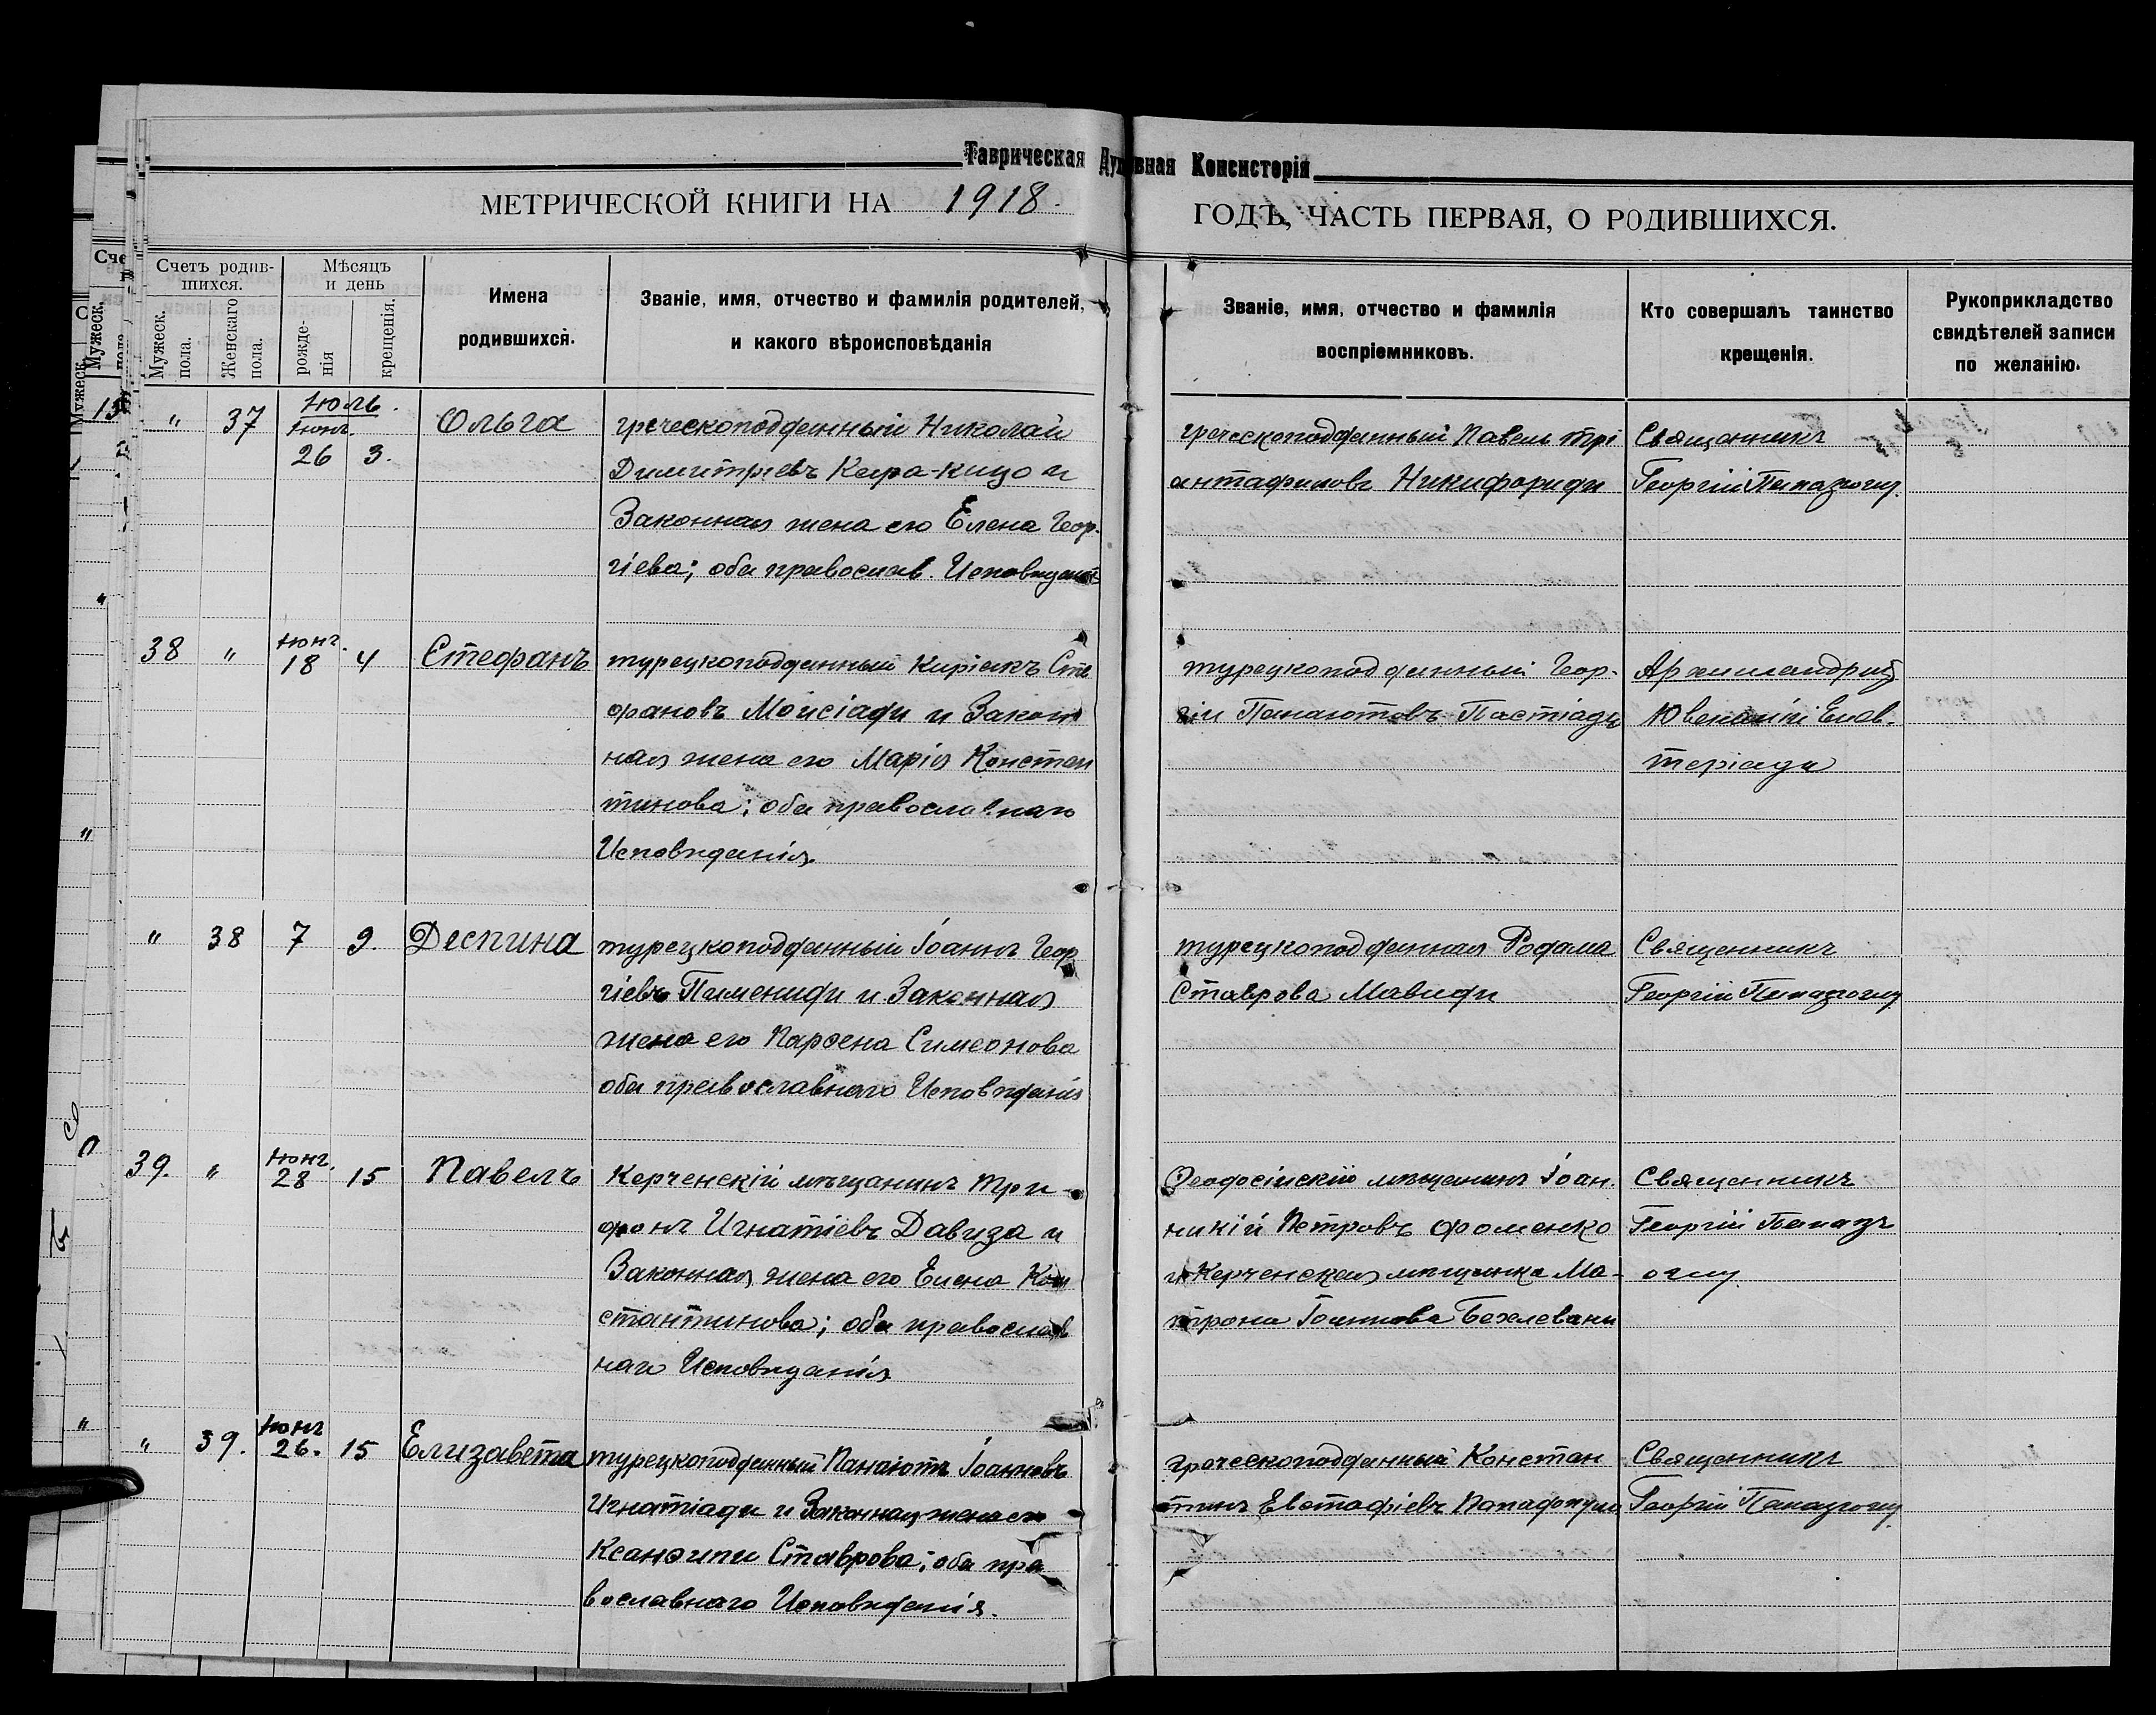 Таврическая Духовная Консисторія
МЕТРИЧЕСКОЙ КНИГИ НА 1918. ГОДЪ, ЧАСТЬ ПЕРВАЯ, О РОДИВШИХСЯ.
Счетъ родив-
шихся.
Мужеск.
пола.
Женскаго
пола.
Мѣсяцъ
и день
рожде-
нія
крещенія.
Имена
родившихся.
Званіе, имя, отчество и фамилія родителей,
и какого вѣроисповѣданія
Званіе, имя, отчество и фамилія
воспріемниковъ.
Кто совершалъ таинство
крещенія.
Рукоприкладство
свидѣтелей записи
по желанію.
Іюль.
" 37 Іюнь. 26 3. Ольга
греческоподданный Николай
Димитріевъ Кара-кицо и
Законная жена его Елена Геор-
гіева; оба православ. Исповѣдані
греческоподданный Павелъ Трі
антафиловъ Никифориди
Священникъ
Георгій Папазоглу.
38 " Іюнь. 18 4 Стефанъ
турецкоподданный Киріакъ Сте
фановъ Мойсіади и Закон
ная жена его Марія Констан
тинова; оба православнаго
Исповѣданія
турецкоподданный Геор-
гій Панаіотовъ Пастіади
Архимандритъ
Ювеналій Елев-
теріади
" 38 7 9. Деспина
турецкоподданный Іоаннъ Геор
гіевъ Пимениди и Законная
жена его Парѳена Симеонова
оба православнаго Исповѣданія
турецкоподданная Родама
Ставрова Мавиди
Священникъ
Георгій Папазоглу
39. " Іюнь. 28 15 Павелъ
Керченскій мѣщанинъ Три-
фонъ Игнатіевъ Давиза и
Законная жена его Елена Кон
стантинова; оба православ
наго Исповѣданія
Ѳеодосійскій мѣщанинъ Іоан.
никій Петровъ Фоменко
и Керченская мѣщанка Ма-
трона Іоаннова Бехлевани
Священникъ
Георгій Папаз
оглу
" 39. Іюнь 26. 15 Елизавета
турецкоподданный Панаіотъ Іоанновъ
Игнатіади и Законная жена его
Ксанѳипи Ставрова; оба пра
вославнаго Исповѣданія.
греческоподданный Констан
тинъ Евстафіевъ Пападопуло
Священникъ
Георгій Папазоглу